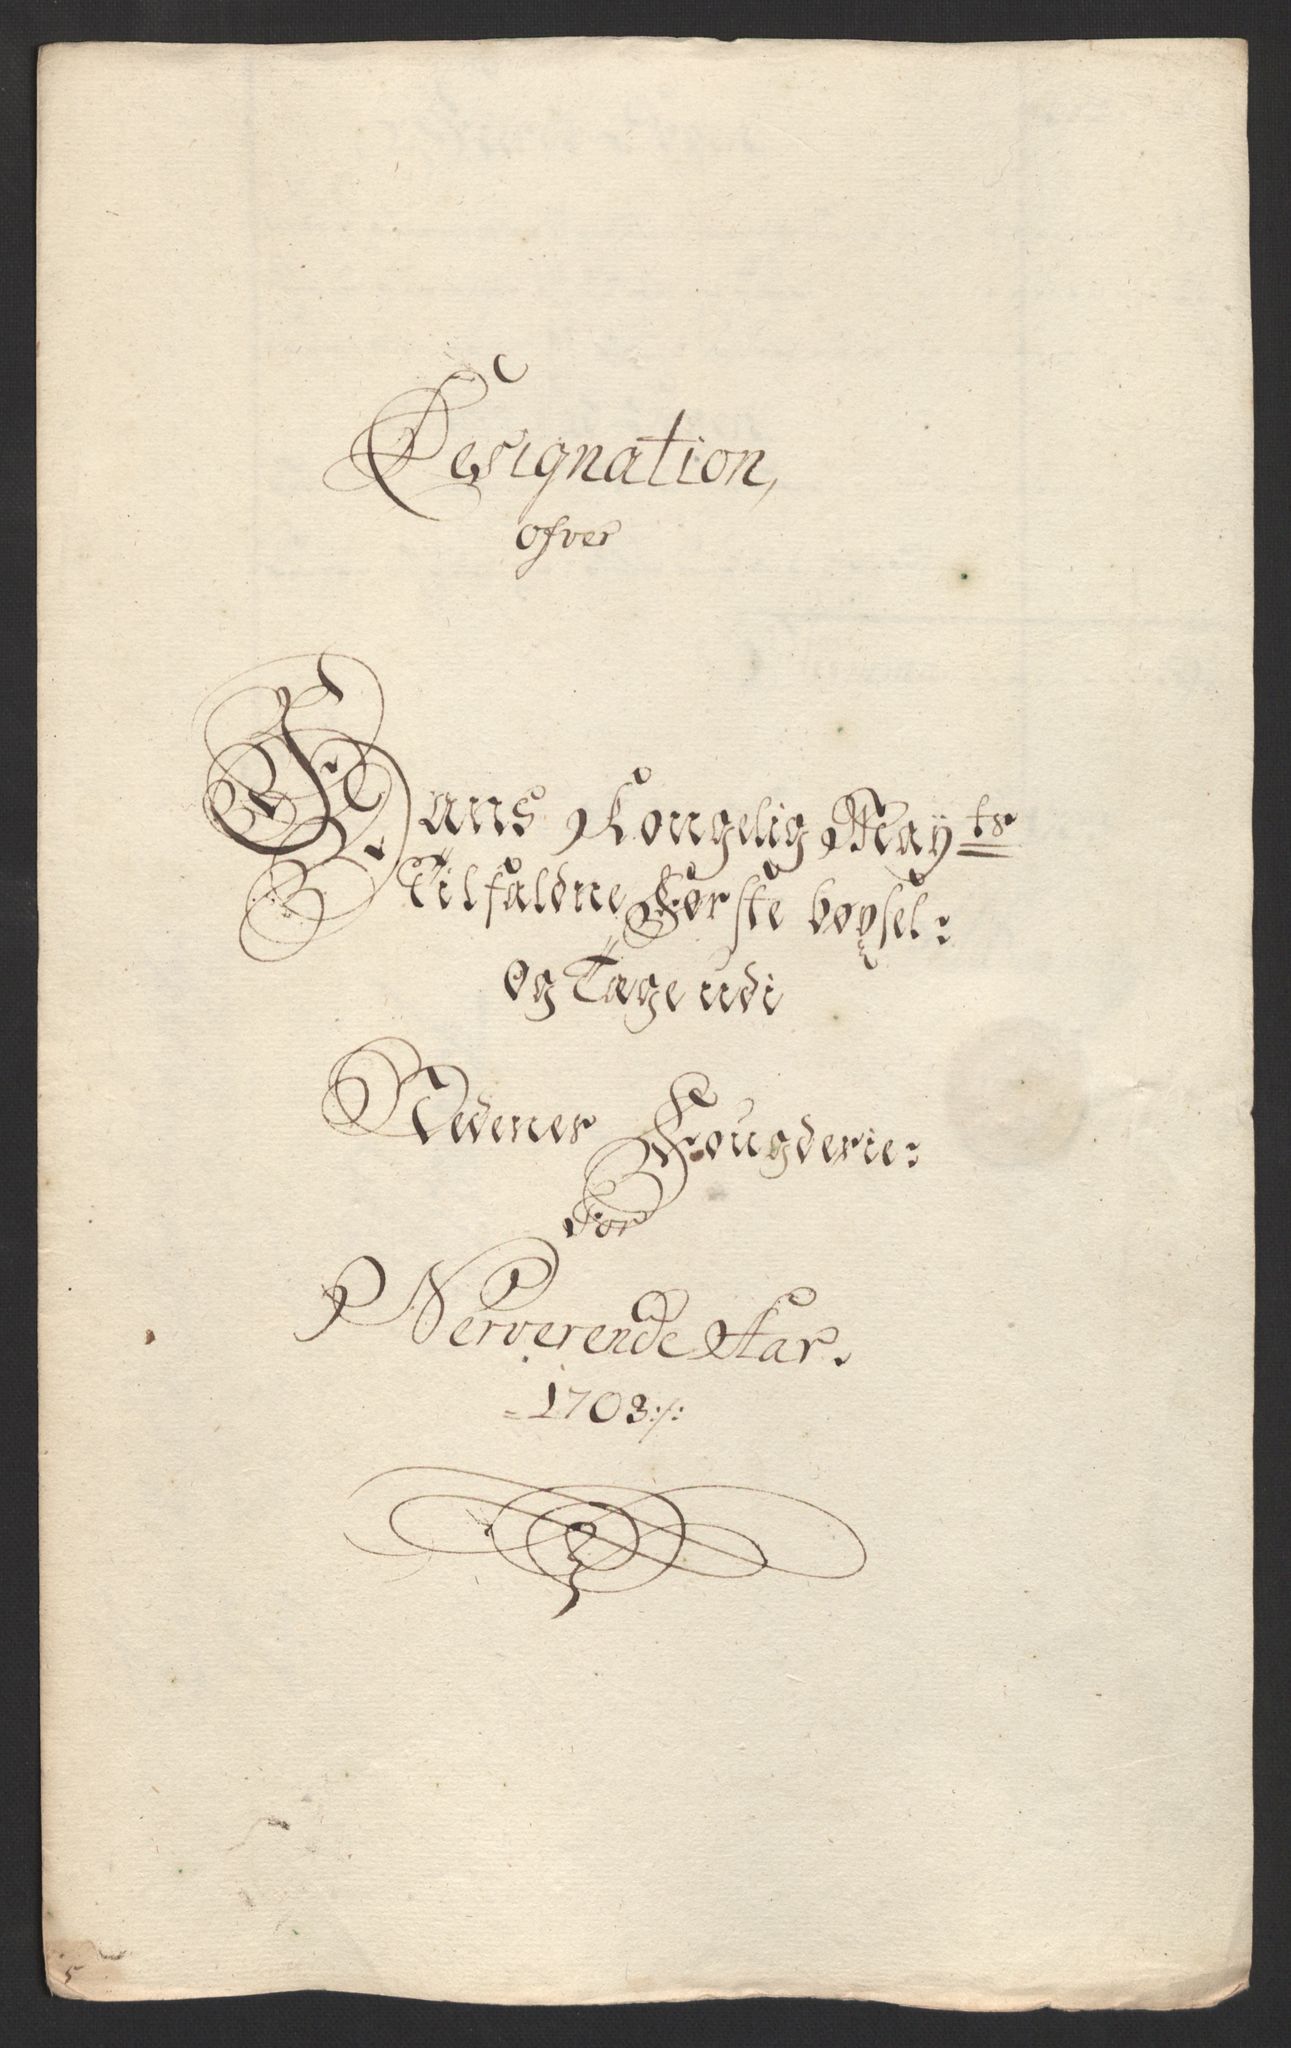 Designation,
ofver
Hans Kongelig Maÿts
Tilfaldne Første böxsel:
og Tage udi
Nedenes Fougderie:
For
Nerverende Aar.
1703:/:
5